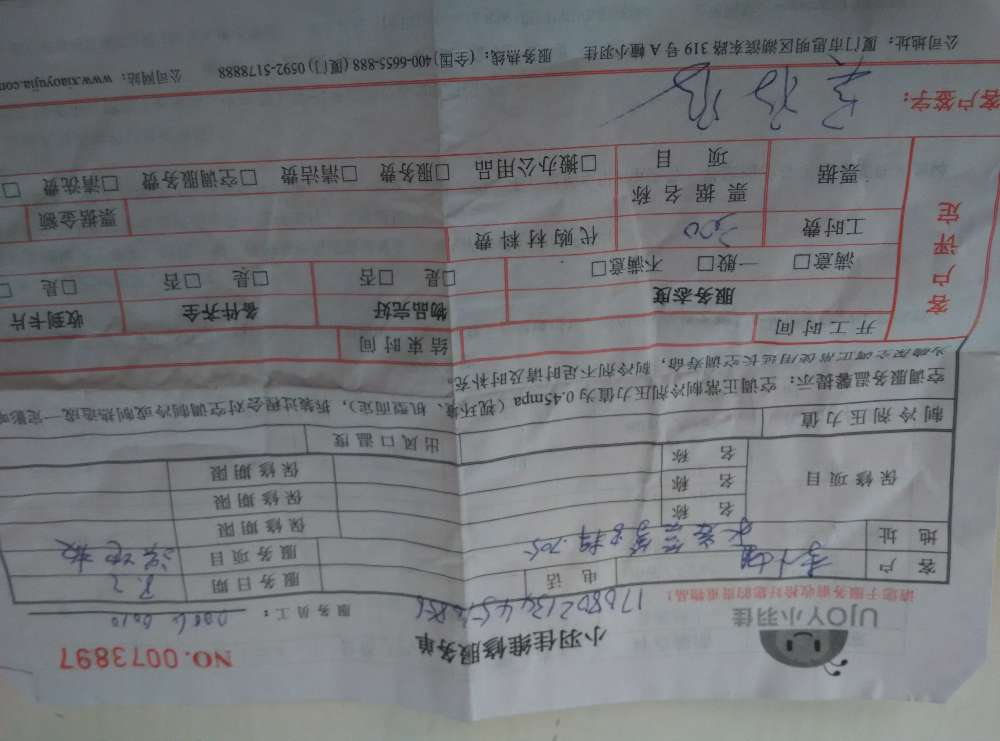 NO.0073897
小羽佳维修服务单
UJOY小羽佳
请您于服务前收检好您的贵重物品！
服务员工：
客户 李小姐 电话 服务日期 8.2
地址 705 服务项目 洗地板
保修项目 名称 保修期限
名称 保修期限
名称 保修期限
制冷剂压力值 出风口温度
空调服务温馨提示：空调正常制冷剂压力值为0.45mpa（视环境、机型而定），拆装过程会对空调制冷或制热造成一定影响
为确保空调正常使用延长空调寿命，制冷剂不足时请及时补充。
客户评定
开工时间 结束时间
服务态度 物品完好 备件齐全 收到卡片
满意□ 一般□ 不满意□ □是 □否 □是 □否 □是 □
工时费 300 代购材料费
票据 票据名称 票据金额
项目 □搬办公用品 □服务费 □清洁费 □空调服务费 □清洗费 □
客户签字：
公司地址：厦门市思明区湖滨东路319号A幢小羽佳 服务热线：(全国)400-6655-888 (厦门) 0592-5178888 公司网站：www.xiaoyujia.com